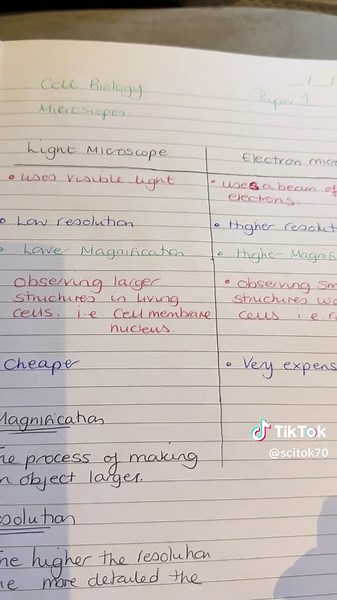 Cell Biology
Microscopes
Paper 1
Light Microscope
Electron micr
• uses visible light
• uses a beam of
electrons.
• Low resolution
• Higher resolut
• Lower Magnification
• Higher Magnifi
observing larger
structures in living
cells. i.e. cell membrane
nucleus.
• observing sm
structures w
cells i.e. r
Cheaper
• Very expens
Magnification
The process of making
an object larger.
solution
The higher the resolution
he more detailed the
TikTok
@scitok70